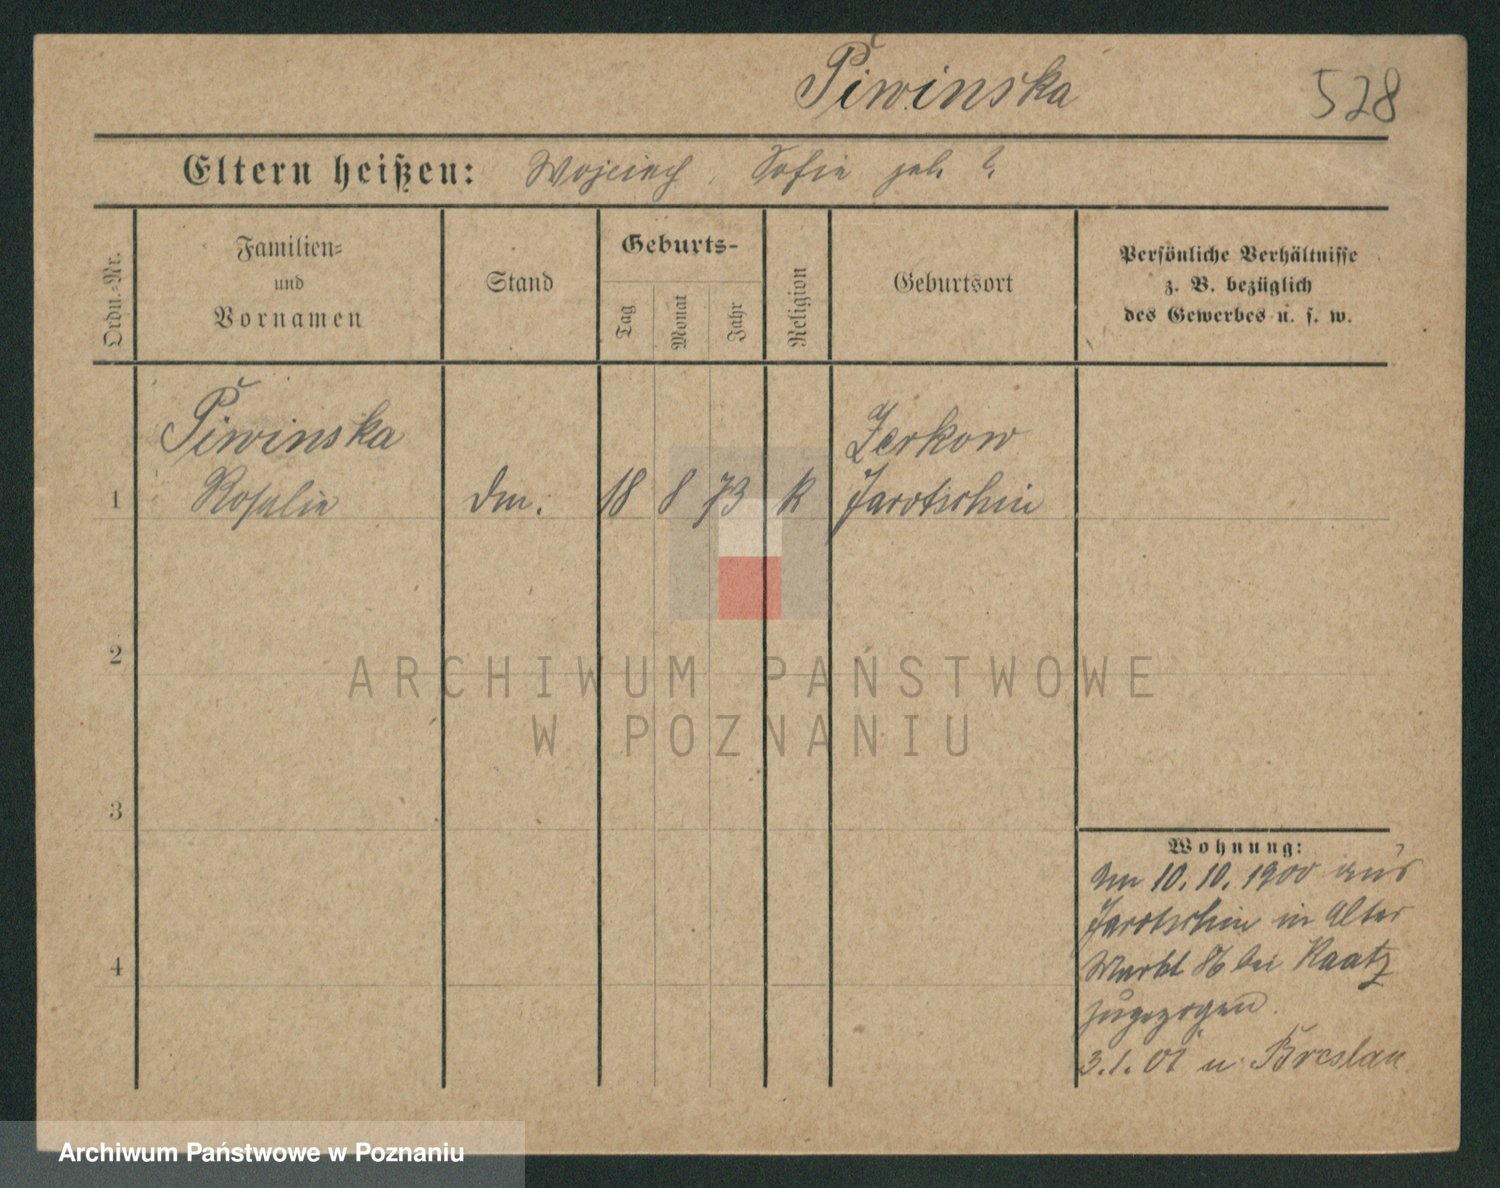 Piwinska
528
Eltern heißen: Wojciech, Sofie geb. ?
Ordn.-Nr.
Familien-
und
Vornamen
Stand
Geburts-
Tag
Monat
Jahr
Religion
Geburtsort
Persönliche Verhältnisse
z. B. bezüglich
des Gewerbes u. s. w.
Piwinska
Zerkow
1 Rosalie Dm. 18 8 73 K Jarotschin
2
ARCHIWUM PAŃSTWOWE
W POZNANIU
3
Wohnung:
Am 10.10.1900 aus
Jarotschin in Alter
4
Markt 86 bei Kaatz
zugezogen.
3.1.01 n. Breslau
Archiwum Państwowe w Poznaniu